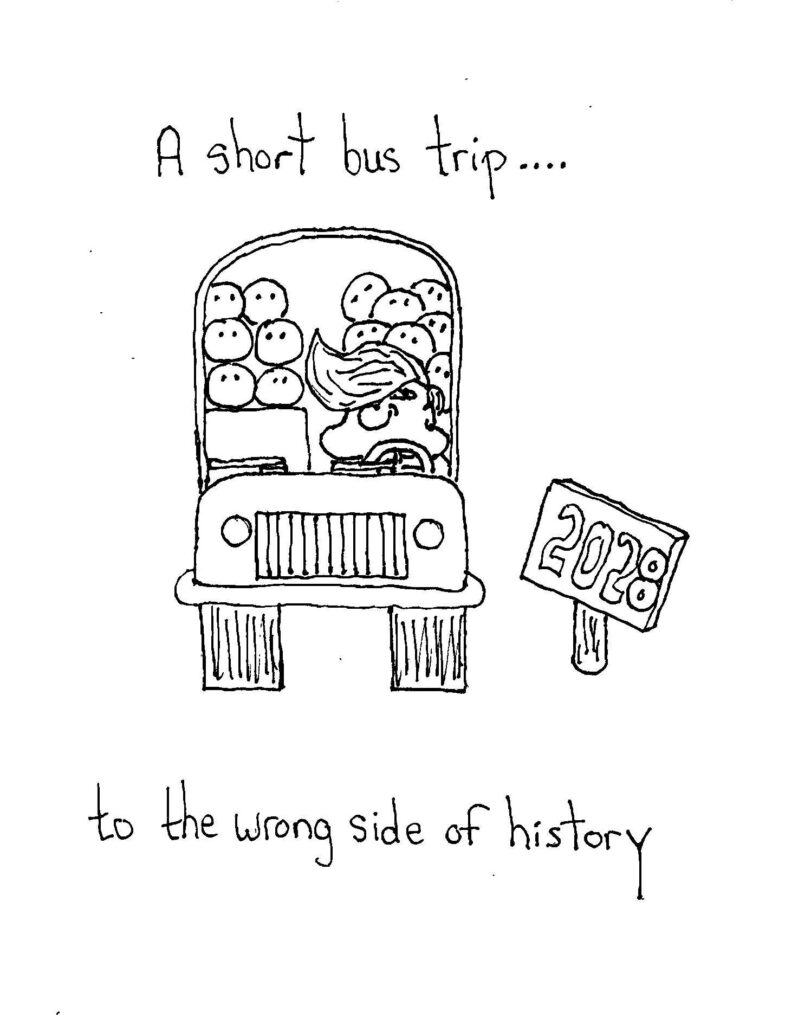 A short bus trip....
2028
to the wrong side of history